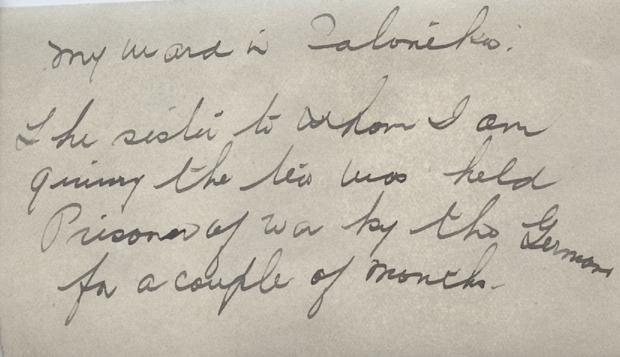 My ward in Salonika.
The sister to whom I am
giving the tea was held
Prisoner of war by the Germans
for a couple of months.